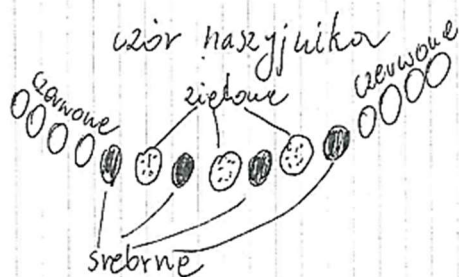 wzór naszyjnika
czerwone
zielone
czerwone
srebrne